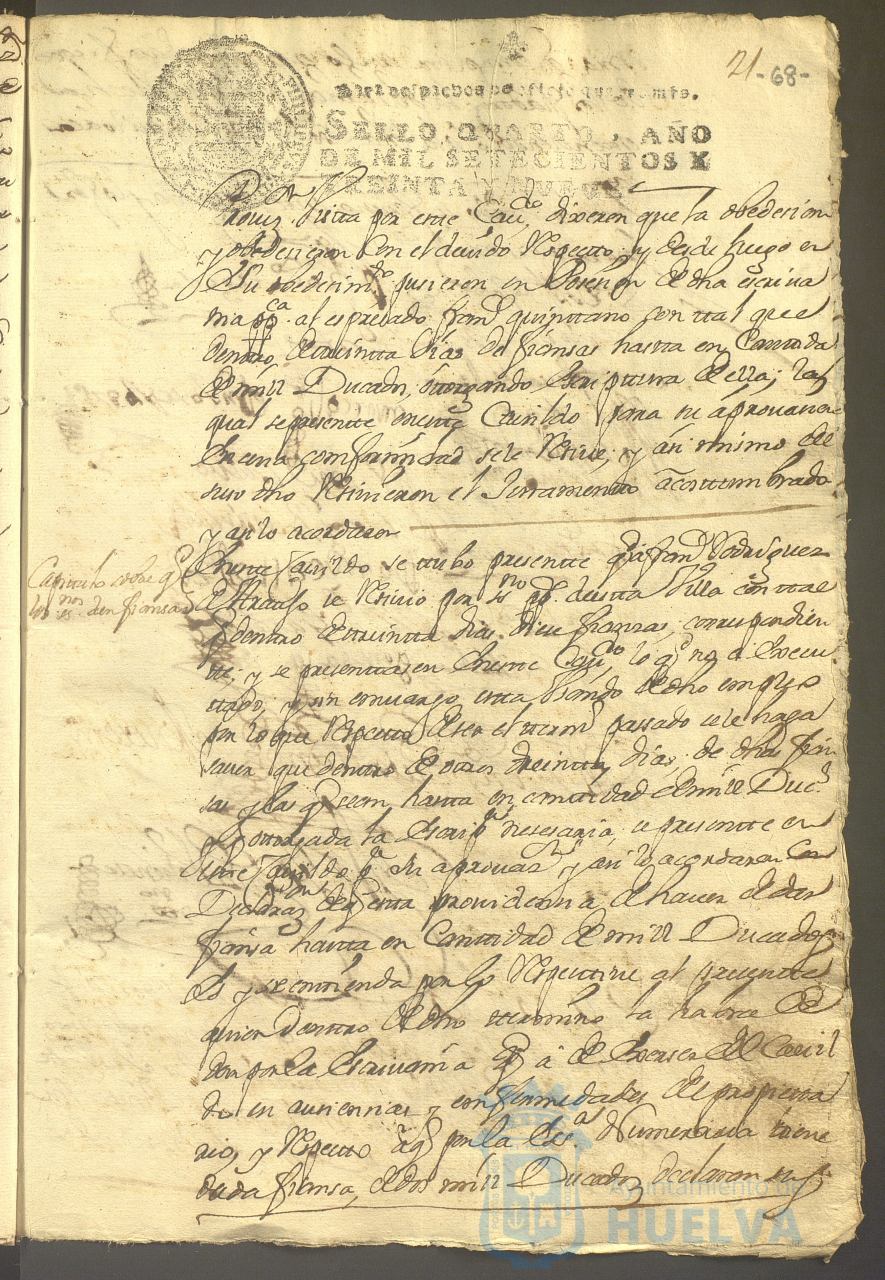 21 -68-
Para despachos de oficio quatro mrs.
SELLO QVARTO, AÑO
DE MIL SETECIENTOS Y
TREINTA Y NUEVE
vista por este Cavdo. dixeron que la obedecian
y obedecieron con el devido Respecto, y desde luego en
su obedecimto. pusieron en Posesion de dha escriva
nia ppca. al espresado franco. quinttano con ttal que
dentro de treintta Dias de fiansas hastta en Canttida
de mill Ducados, ottorgando Escripttura de ella; la
qual se presentte en este Cavildo para su aprovacion
En cuia Comformidad se le Resive, y asi mismo de
suso dho Resivieron el Juramentto acosttumbrado
y asi lo acordaron
Capitulo sobre qe
los ssnos. den fiansas
En este Cavildo se ttubo presentte qe franco. Rodriguez
se Resivio por ssno ppco. de estta Villa con ttal
dentro de treintta dias diese fianzas correspondien
tte, y se presenttasen En este Cavdo. lo qe no a Execu
ttado, y sin emvargo estta Usando de dho empleo
por lo que Respecto de ser el ttermo. passado se le haga
saver que dentro de ottros treintta dias, de dhas fian
sas y las qe sean hastta en canttidad de mill Ducs.
y ottorgada la Escripa. nesesaria, se presentte en
este Cavildo pa. su aprovasn. y asi lo acordaron Con
Declarazon. de qe estta providencia de haver de dar
fiansa hastta en Canttidad de mill Ducados
es y se enttienda por lo Respecttive al presentte
quien dentro de dho ttermino la ha de
dar por la Escrivania qe a de Exerser del Cavil
do en ausencias y emfermedades del propietta
rio, y Respecto a qe por la Esca. Numeraria ttiene
dada fiansa, de dos mill Ducados declaran su
Ayuntamiento de
HUELVA